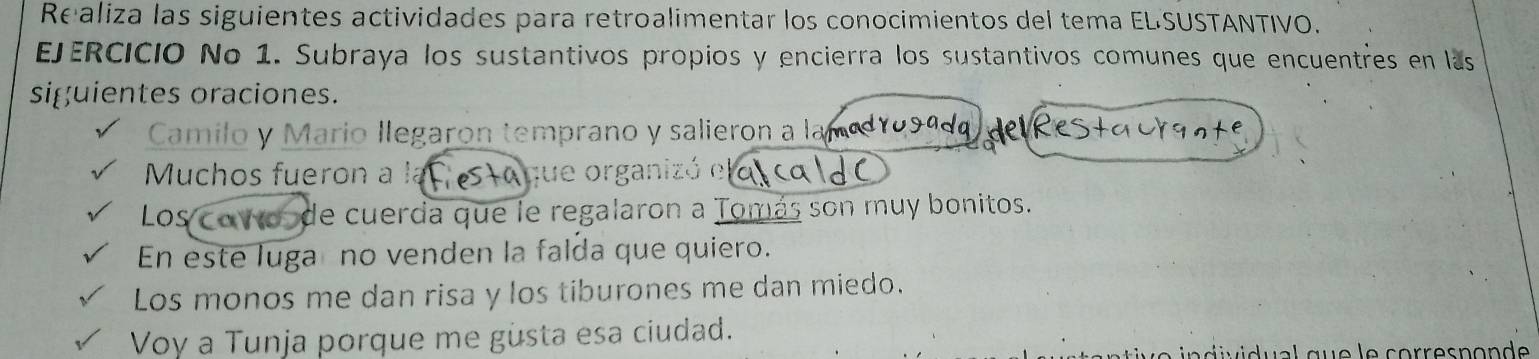 Realiza las siguientes actividades para retroalimentar los conocimientos del tema EL SUSTANTIVO.
EJERCICIO No 1. Subraya los sustantivos propios y encierra los sustantivos comunes que encuentres en las
siguientes oraciones.
✓ Camilo y Mario llegaron temprano y salieron a la madrugada del Restaurante
✓ Muchos fueron a la fiesta que organizó el alcalde
✓ Los carros de cuerda que le regalaron a Tomás son muy bonitos.
✓ En este lugar no venden la falda que quiero.
✓ Los monos me dan risa y los tiburones me dan miedo.
✓ Voy a Tunja porque me gusta esa ciudad.
individual que le corresponde